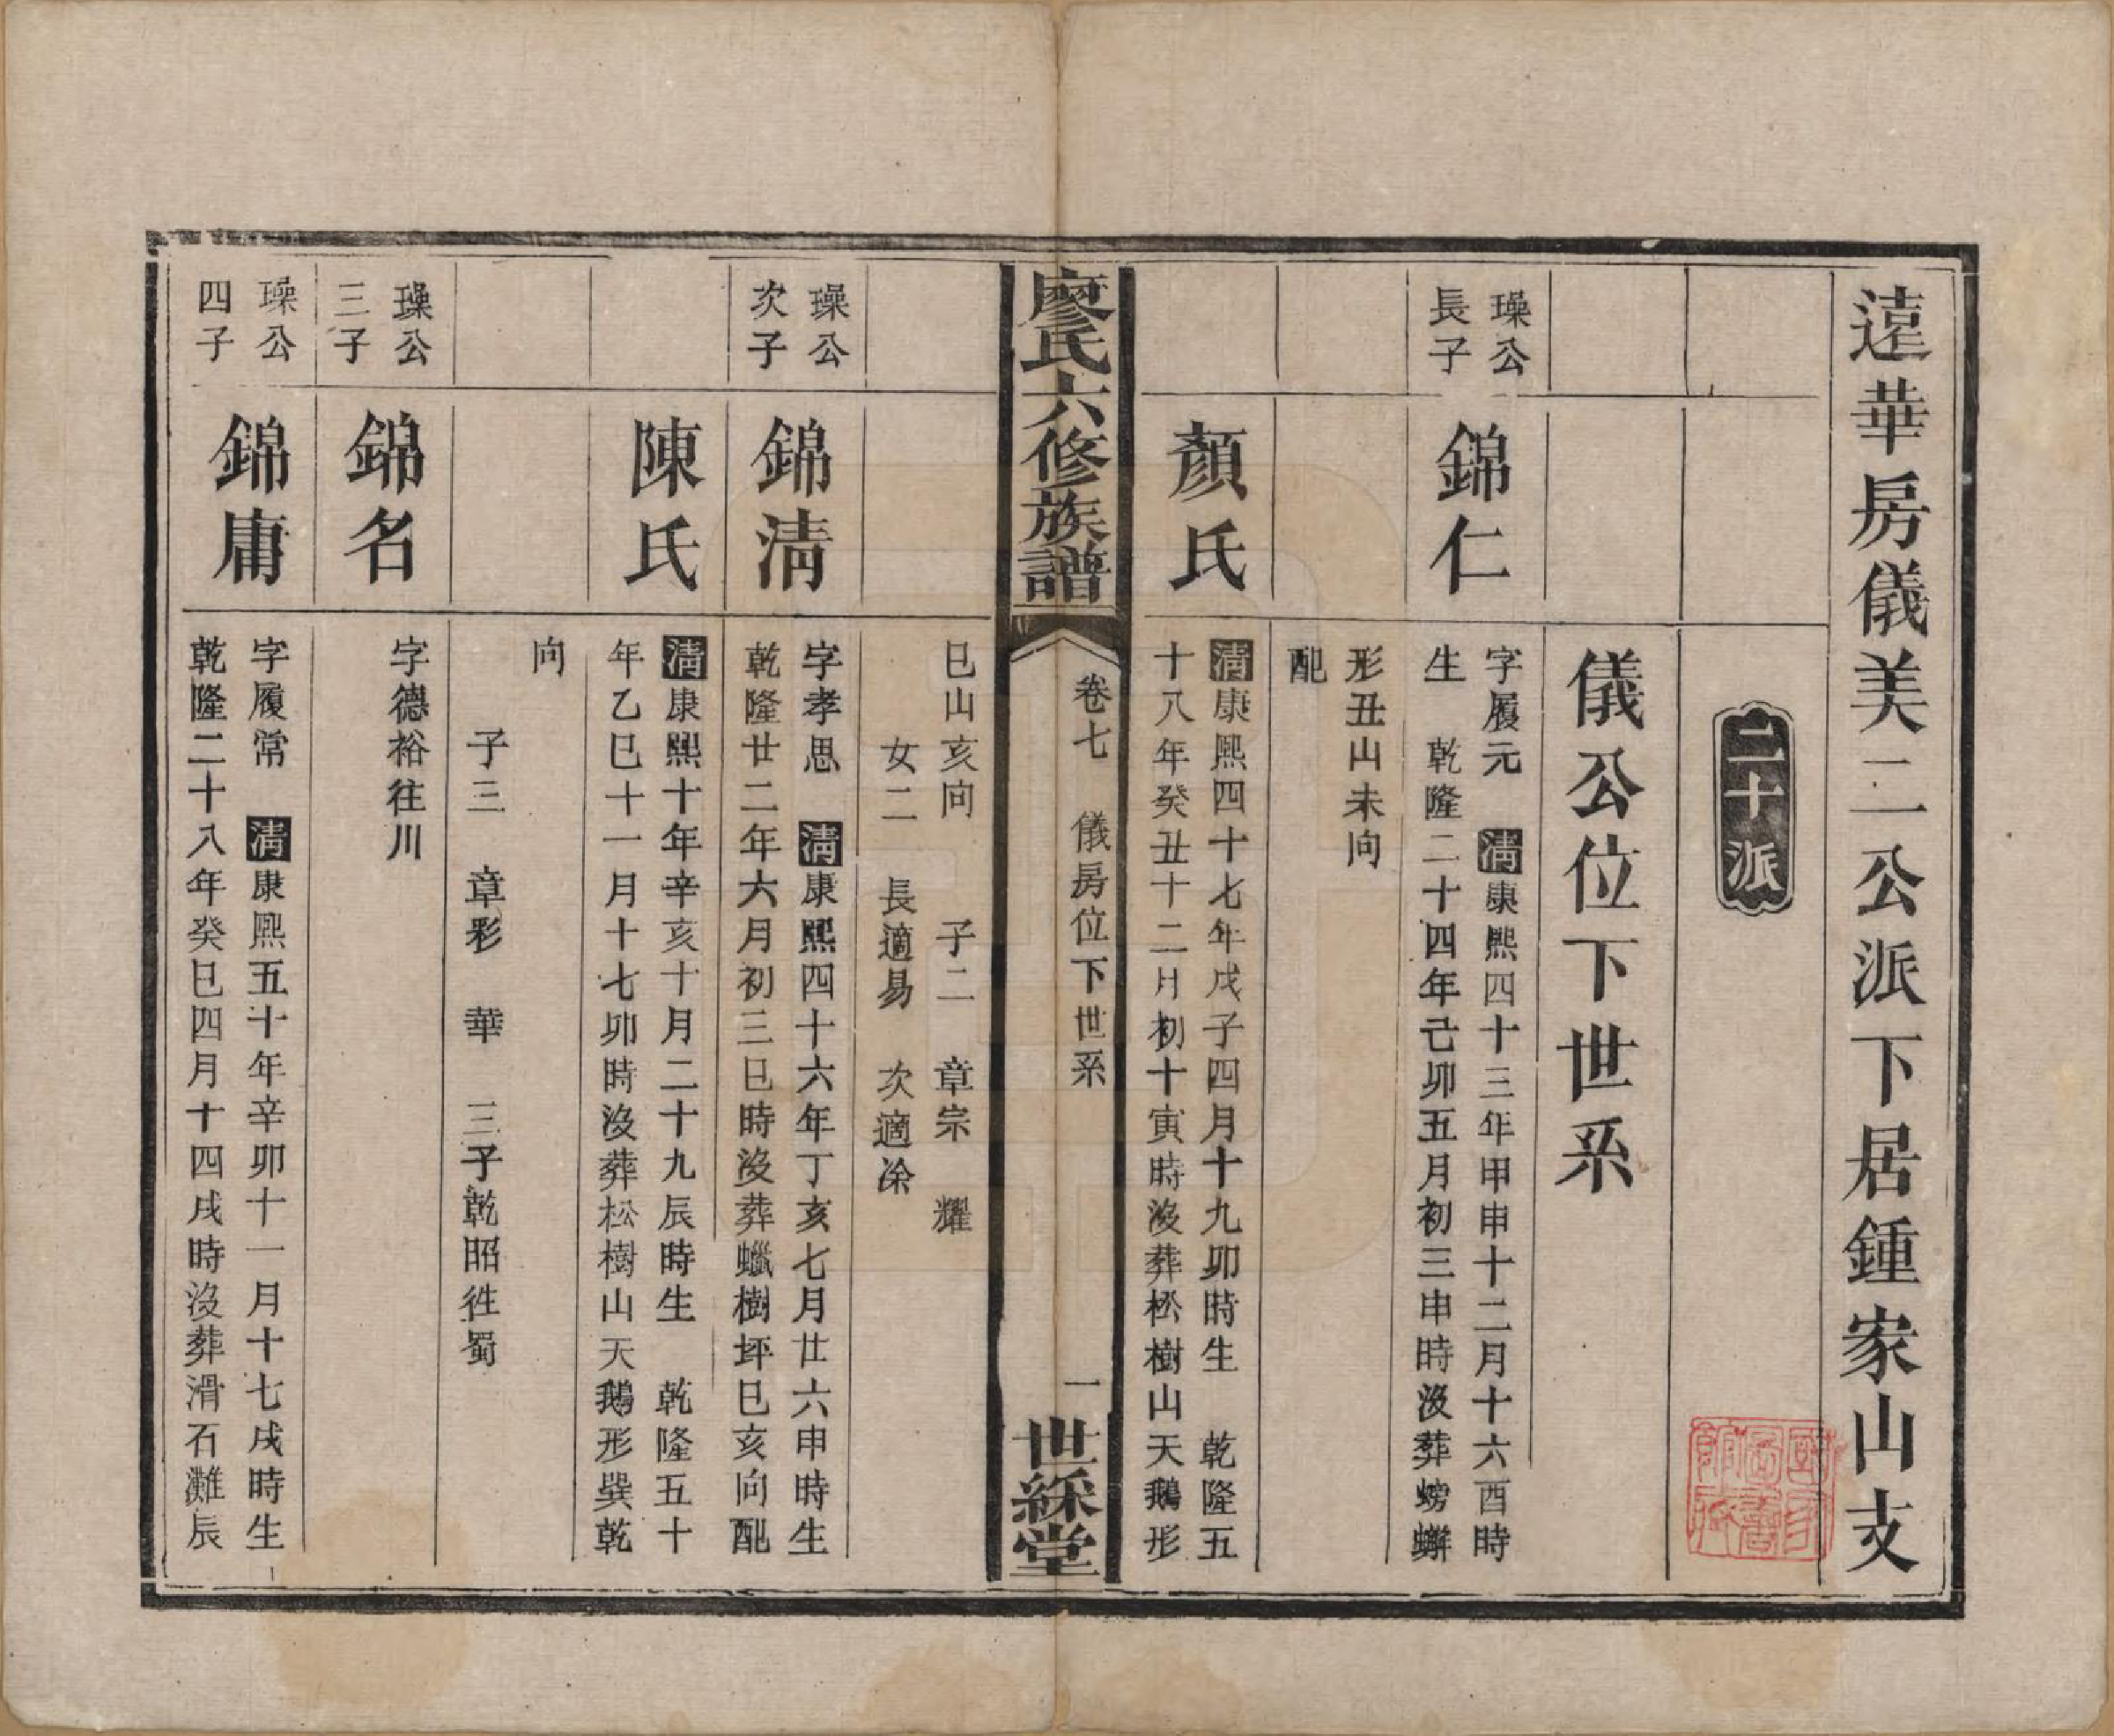 遠華房儀美二公派下居鍾家山支
二十派
儀公位下世系
璪公
長子
錦仁
字履元　清康熙四十三年甲申十二月十六酉時
生　乾隆二十四年己卯五月初三申時没葬螃蠏
形丑山未向
配
顏氏
清康熙四十七年戊子四月十九卯時生　乾隆五
十八年癸丑十二月初十寅時没葬松樹山天鵝形
廖氏六修族譜
卷七　儀房位下世系
一
世綵堂
巳山亥向　　子二　章宗　耀
女二　長適易　次適涂
璪公
次子
錦淸
字孝思　清康熙四十六年丁亥七月廿六申時生
乾隆廿二年六月初三巳時没葬蠟樹坪巳亥向配
陳氏
清康熙十年辛亥十月二十九辰時生　乾隆五十
年乙巳十一月十七卯時没葬松樹山天鵝形巽乾
向
子三　章彩　華　三子乾昭徃蜀
璪公
三子
錦名
字德裕往川
璪公
四子
錦庸
字履常　清康熙五十年辛卯十一月十七戌時生
乾隆二十八年癸巳四月十四戌時没葬滑石灘辰